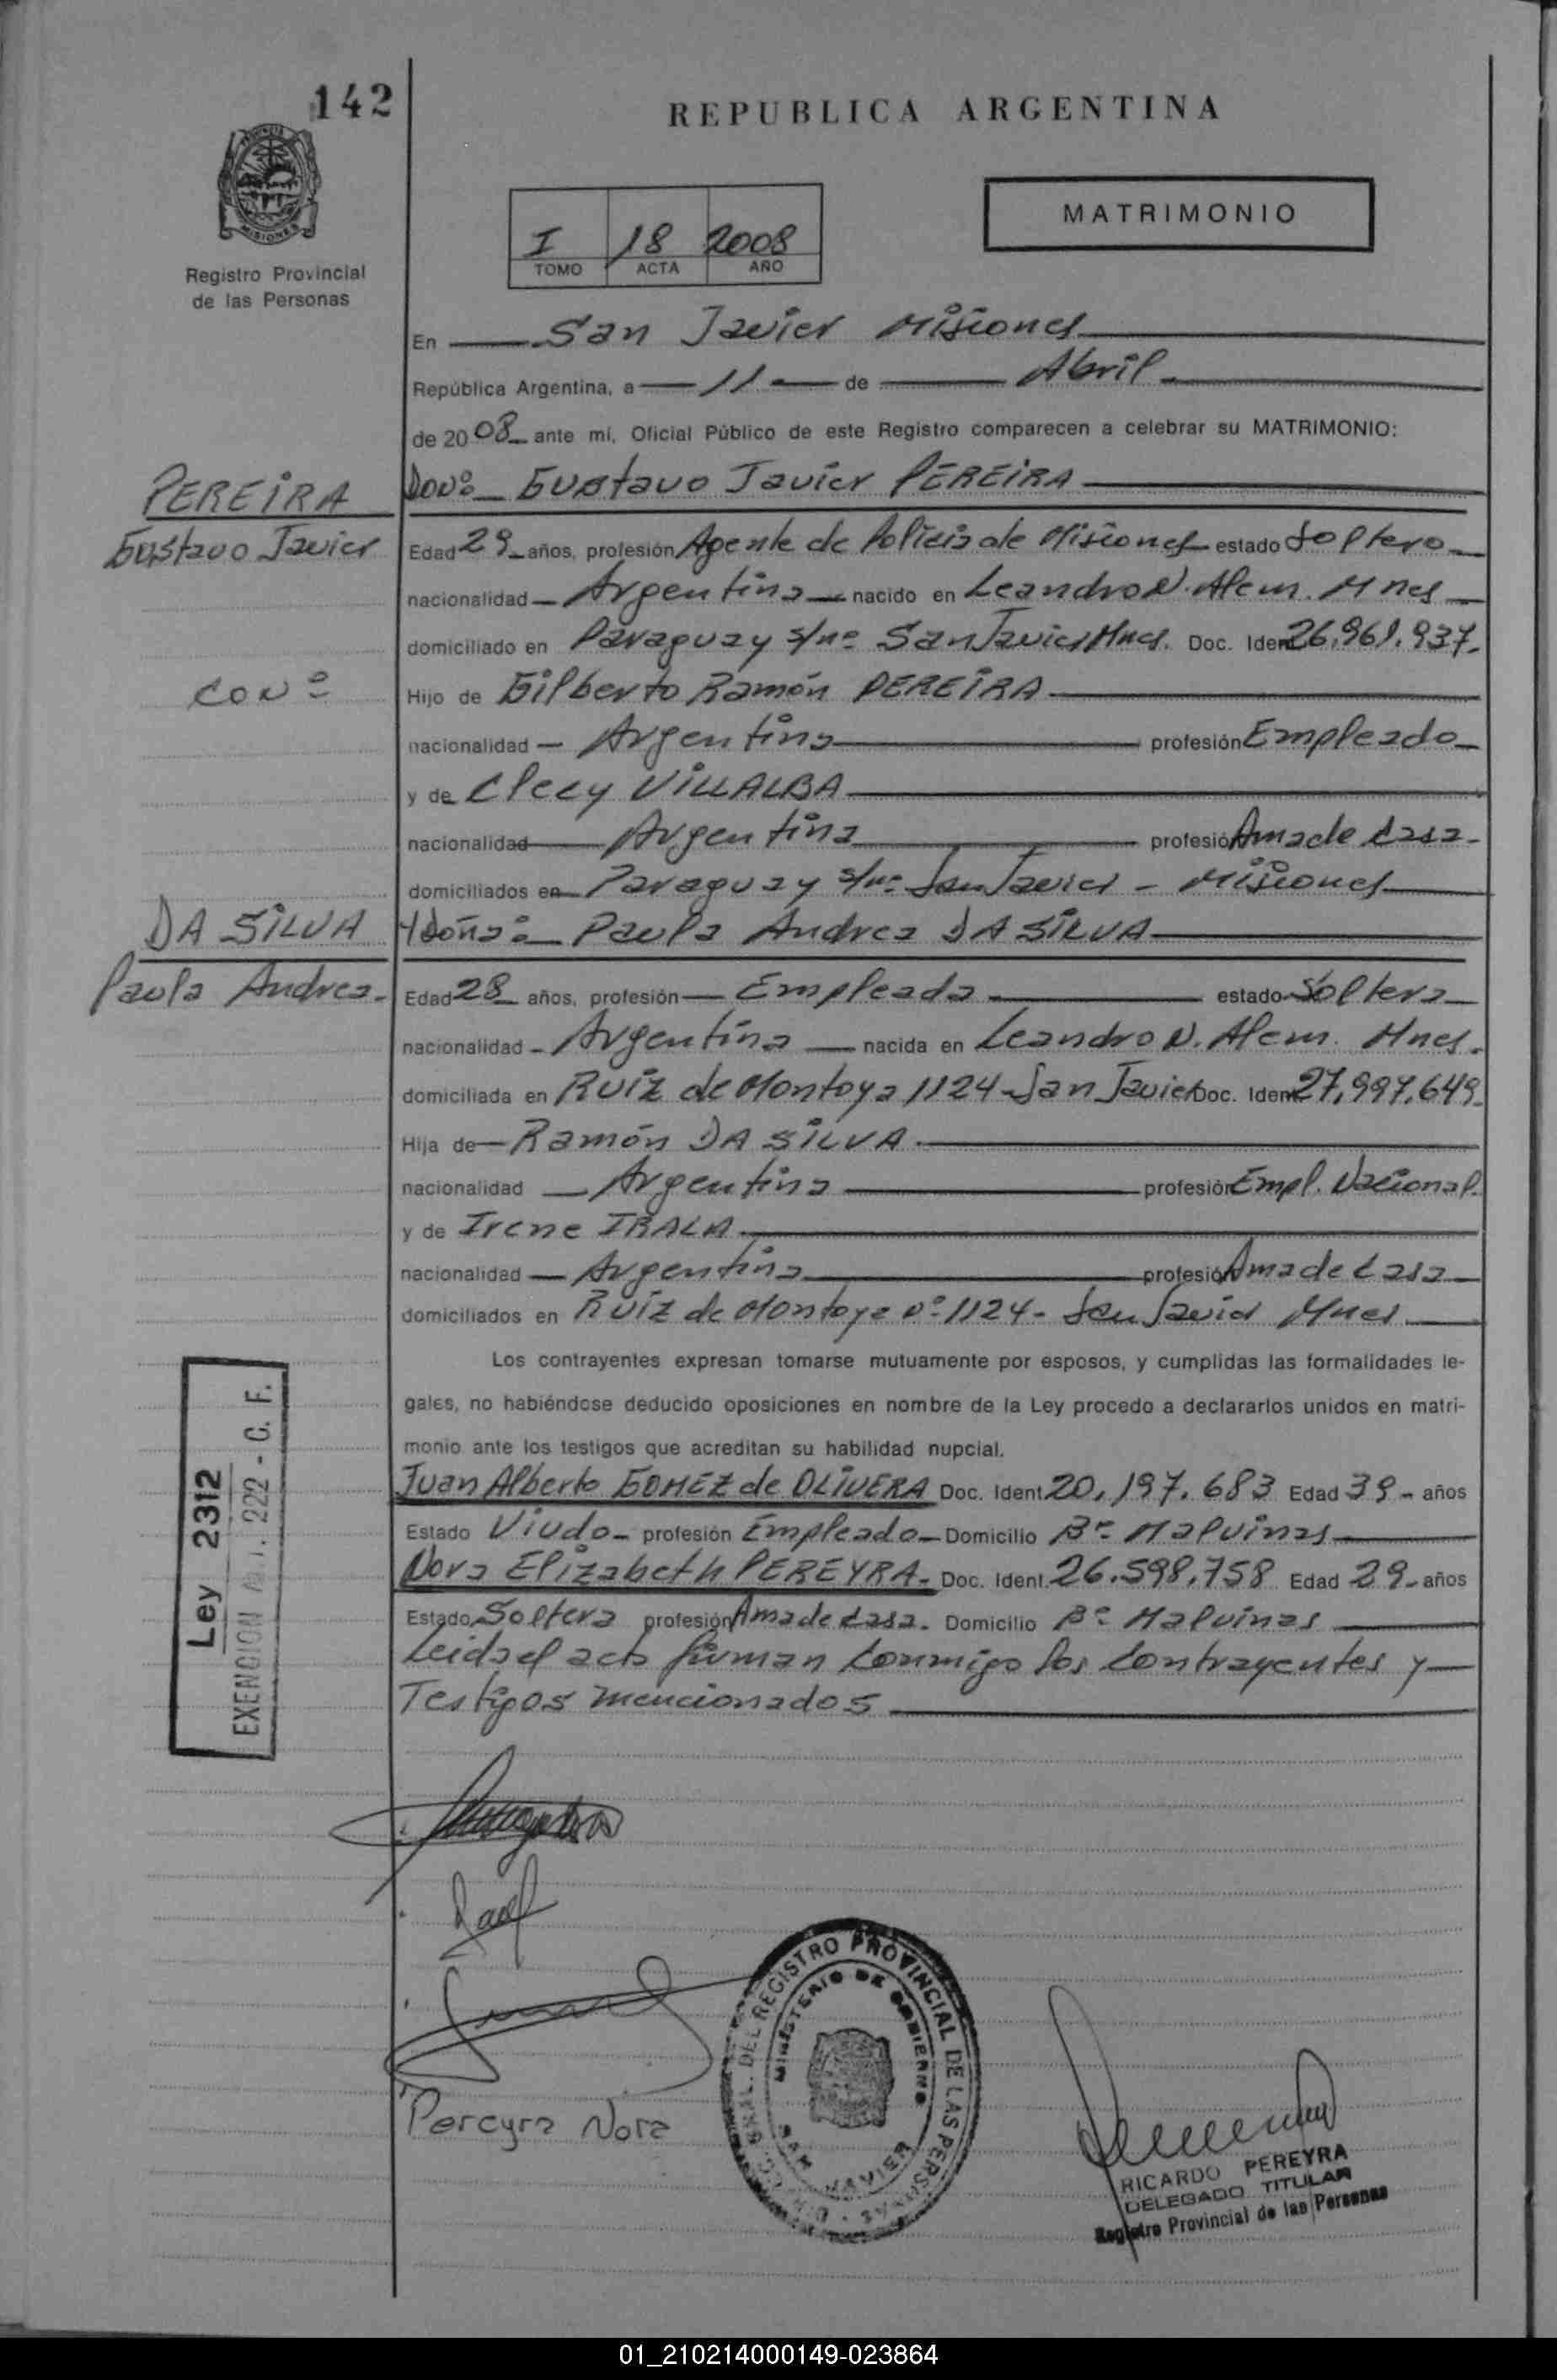 142
REPUBLICA ARGENTINA
MISIONES
Registro Provincial
de las Personas
I 18 2008
TOMO ACTA AÑO
MATRIMONIO
En San Javier Misiones
República Argentina, a 11 de Abril
de 2008 ante mí, Oficial Público de este Registro comparecen a celebrar su MATRIMONIO:
PEREIRA
Gustavo Javier
Don: Gustavo Javier PEREIRA
Edad 29 años, profesión Agente de Policía de Misiones estado Soltero
nacionalidad Argentina nacido en Leandro N. Alem. Mnes
domiciliado en Paraguay s/nº San Javier Mnes. Doc. Ident. 26.961.937.
CON=
Hijo de Gilberto Ramón PEREIRA
nacionalidad Argentina profesión Empleado
y de Clecy VILLALBA
nacionalidad Argentina profesión Ama de Casa
domiciliados en Paraguay s/nº San Javier - Misiones
DA SILVA
Paola Andrea.
Y doña: Paola Andrea DA SILVA
Edad 28 años, profesión Empleada estado Soltera
nacionalidad Argentina nacida en Leandro N. Alem. Mnes.
domiciliada en Ruiz de Montoya 1124 - San Javier Doc. Ident. 27.997.649.
Hija de Ramón DA SILVA
nacionalidad Argentina profesión Empl. Nacional.
y de Irene IRALA
nacionalidad Argentina profesión Ama de Casa
domiciliados en Ruiz de Montoya Nº 1124 - San Javier Mnes
Los contrayentes expresan tomarse mutuamente por esposos, y cumplidas las formalidades le-
gales, no habiéndose deducido oposiciones en nombre de la Ley procedo a declararlos unidos en matri-
monio ante los testigos que acreditan su habilidad nupcial.
Juan Alberto GOMEZ de OLIVERA Doc. Ident. 20.197.683 Edad 39 - años
Estado Viudo - profesión Empleado - Domicilio Bº Malvinas
Nora Elizabeth PEREYRA - Doc. Ident. 26.598.758 Edad 29 - años
Estado Soltera profesión Ama de Casa. Domicilio Bº Malvinas
Leida el acta firman conmigo los contrayentes y
Testigos mencionados
Ley 2312
EXENCION Art. 222 - C. F.
Pereyra Nora
GRAL. DEL REGISTRO PROVINCIAL DE LAS PERSONAS
MINISTERIO DE GOBIERNO
SAN JAVIER
RICARDO PEREYRA
DELEGADO TITULAR
Registro Provincial de las Personas
01_210214000149-023864